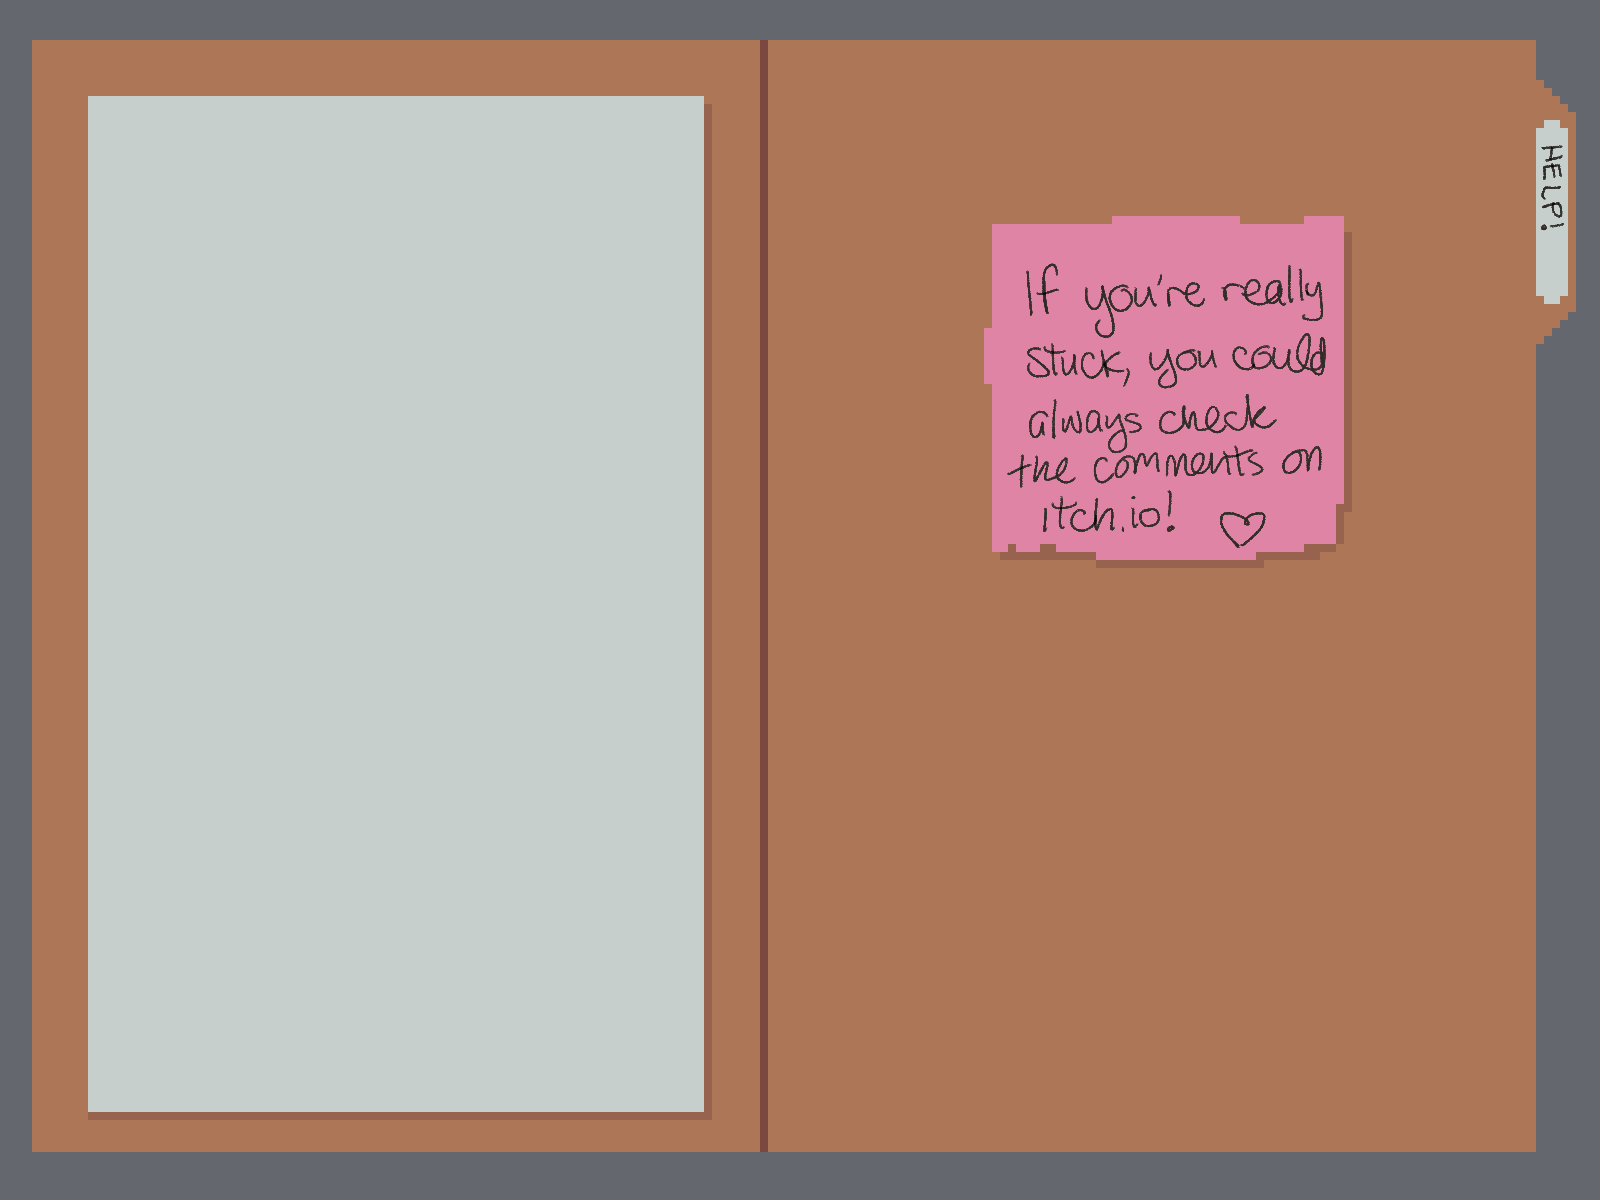 If you're really
stuck, you could
always check
the comments on
itch.io!
HELP!